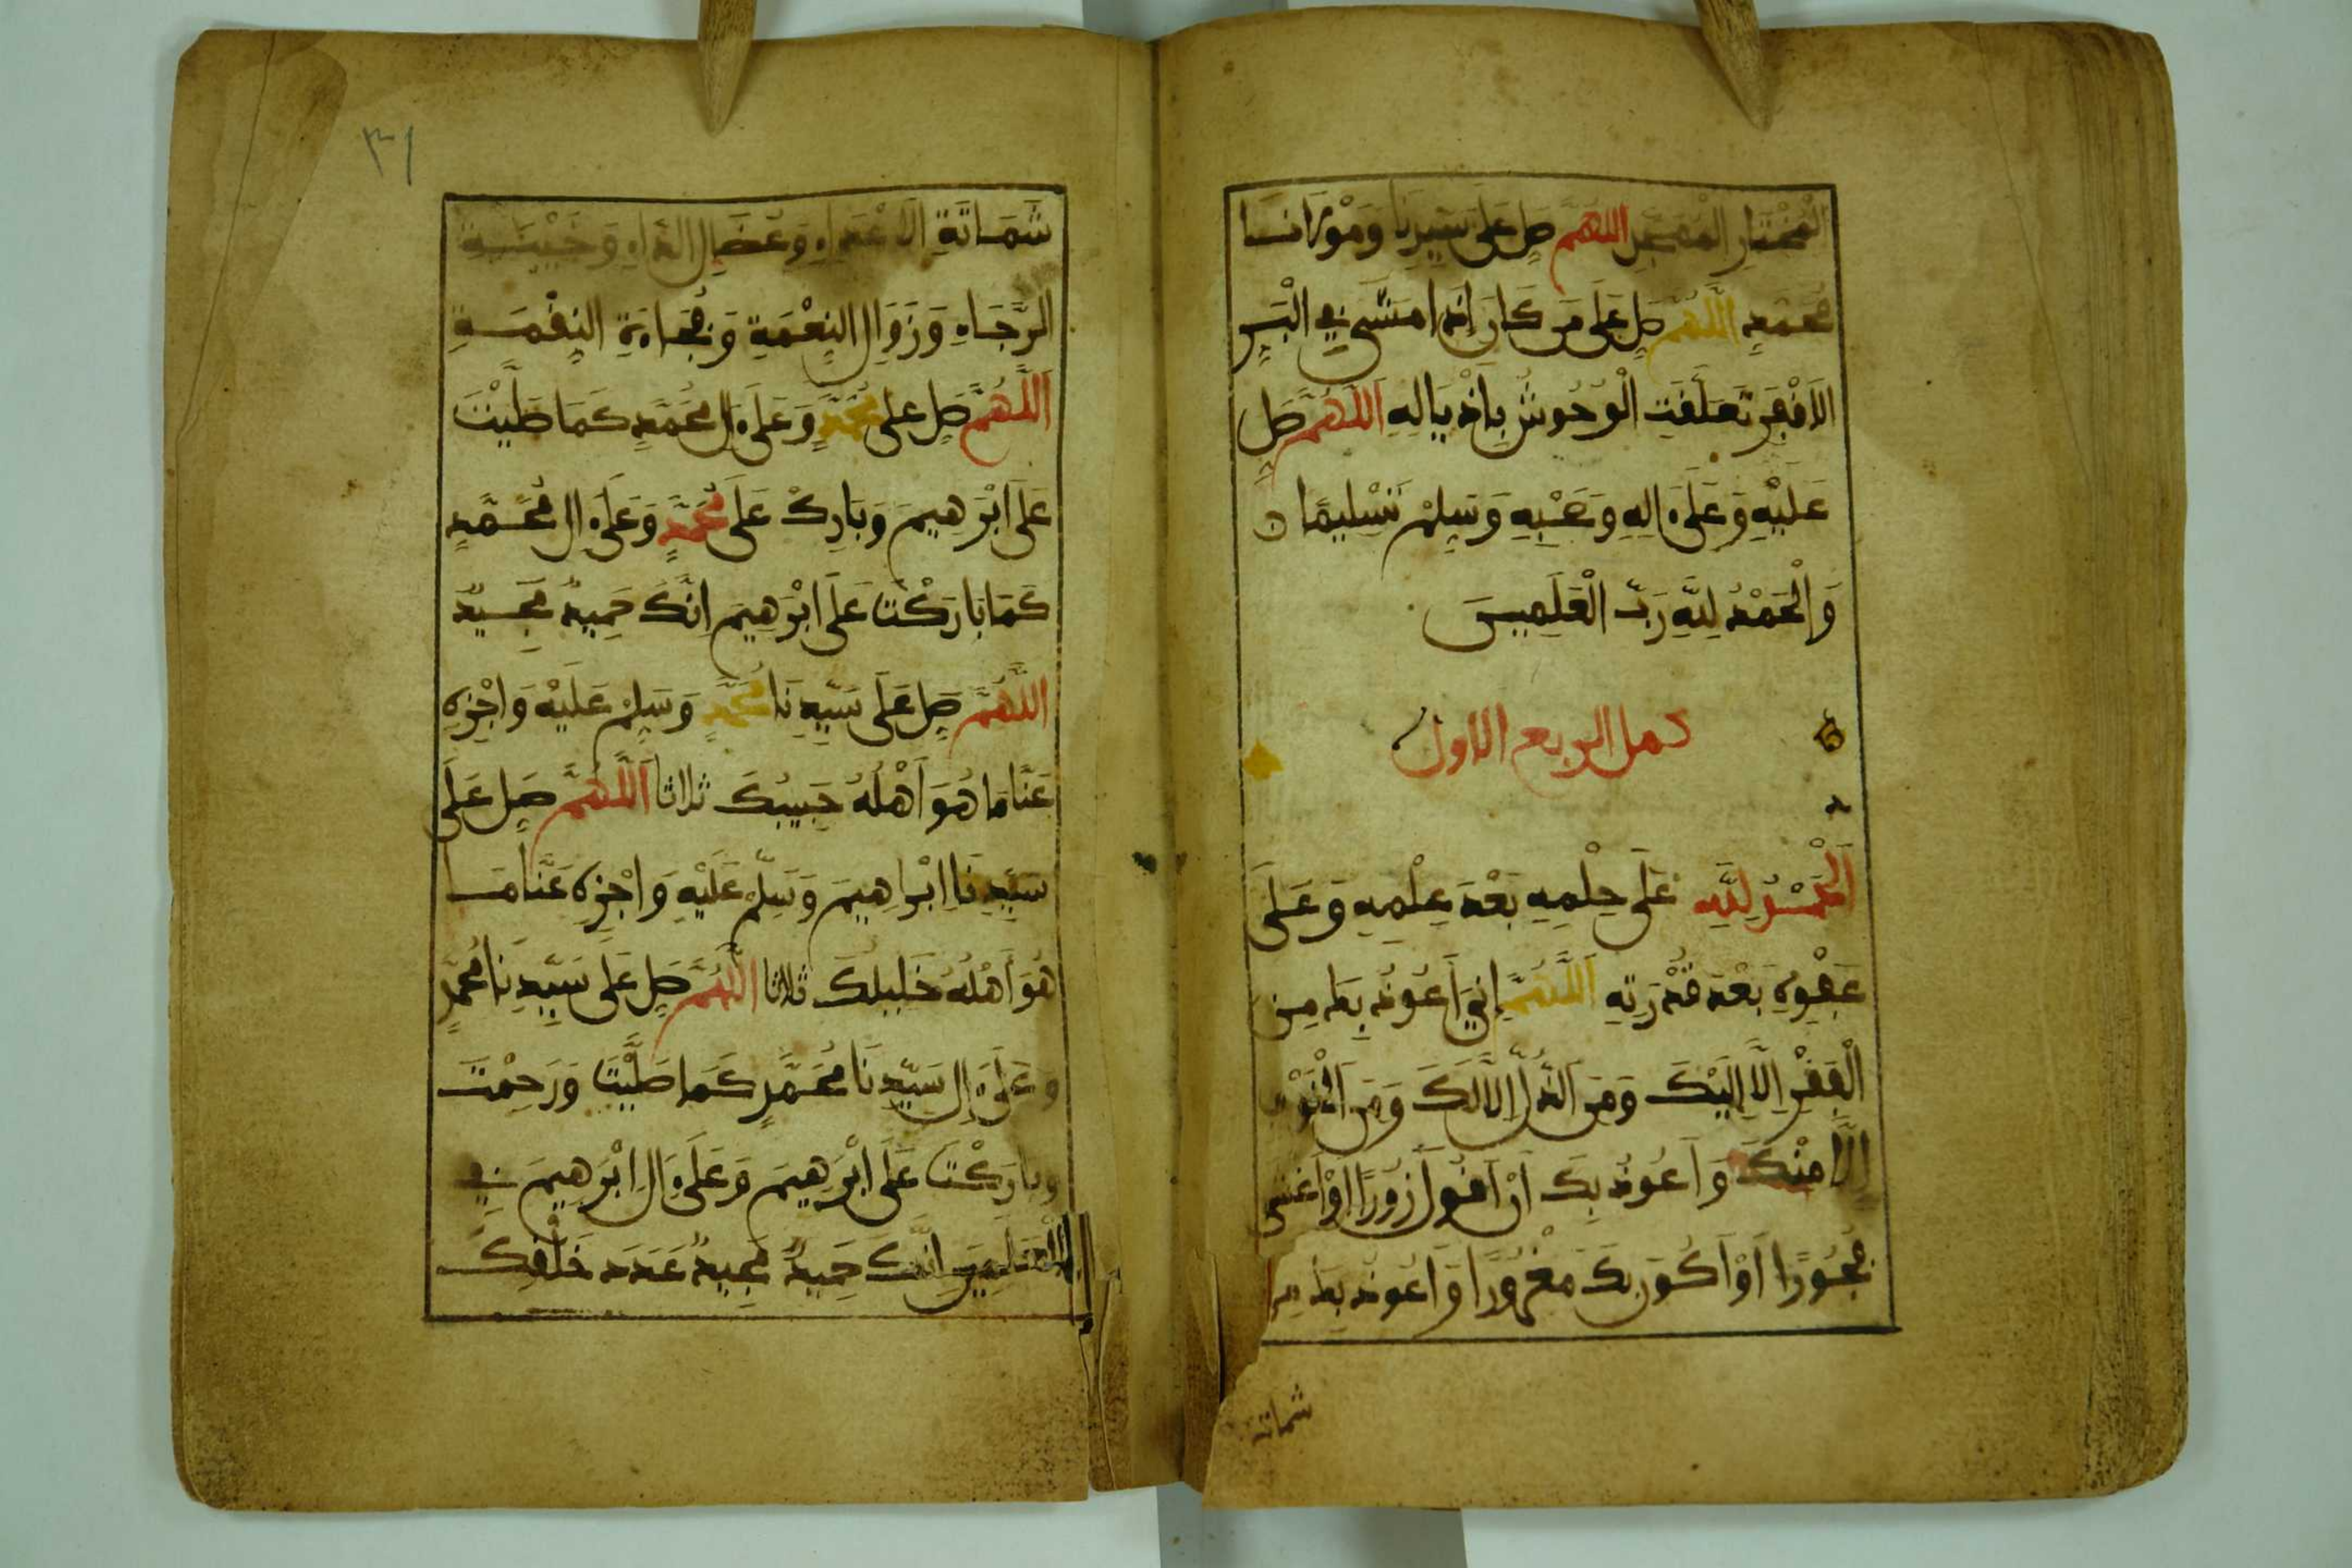 الْمُخْتَارِ الْمُفَضَّلِ اللَّهُمَّ صَلِّ عَلَى سَيِّدِنَا وَمَوْلَانَا
مُحَمَّدٍ اللَّهُمَّ صَلِّ عَلَى مَن كَانَ إِذَا مَشَى فِي الْبَرِّ
الْأَقْفَرِ تَعَلَّقَتِ الْوُحُوشُ بِأَذْيَالِهِ اللَّهُمَّ صَلِّ
عَلَيْهِ وَعَلَى ءَالِهِ وَصَحْبِهِ وَسَلِّمْ تَسْلِيمًا
وَالْحَمْدُ لِلَّهِ رَبِّ الْعَلَمِينَ
كمل الربع الاول
اَلْحَمْدُ لِلَّهِ عَلَى حِلْمِهِ بَعْدَ عِلْمِهِ وَعَلَى
عَفْوِهِ بَعْدَ قُدْرَتِهِ اَللَّهُمَّ إِنِّي أَعُوذُ بِكَ مِنَ
الْفَقْرِ إِلَّا إِلَيْكَ وَمِنَ الذُّلِّ إِلَّا لَكَ وَمِنَ الْخَوْفِ
إِلَّا مِنْكَ وَأَعُوذُ بِكَ أَنْ أَقُولَ زُورًا أَوْ أَغْشَى
فُجُورًا أَوْ أَكُونَ بِكَ مَغْرُورًا وَأَعُوذُ بِكَ مِن
شماتة
٣١
شَمَاتَةِ الْأَعْدَاءِ وَعُضَالِ الدَّاءِ وَخَيْبَةِ
الرَّجَاءِ وَزَوَالِ النِّعْمَةِ وَفُجَاءَةِ النِّقْمَةِ
اَللَّهُمَّ صَلِّ عَلَى مُحَمَّدٍ وَعَلَى ءَالِ مُحَمَّدٍ كَمَا صَلَّيْتَ
عَلَى ابْرَهِيمَ وَبَارِكْ عَلَى مُحَمَّدٍ وَعَلَى ءَالِ مُحَمَّدٍ
كَمَا بَارَكْتَ عَلَى ابْرَهِيمَ اِنَّكَ حَمِيدٌ مَجِيدٌ
اللَّهُمَّ صَلِّ عَلَى سَيِّدِنَا مُحَمَّدٍ وَسَلِّمْ عَلَيْهِ وَاجْزِهِ
عَنَّا مَا هُوَ أَهْلُهُ حَبِيبُكَ ثلاثا اَللَّهُمَّ صَلِّ عَلَى
سَيِّدِنَا اِبْرَاهِيمَ وَسَلِّمْ عَلَيْهِ وَاجْزِهِ عَنَّا مَا
هُوَ أَهْلُهُ خَلِيلُكَ ثلاثا اللَّهُمَّ صَلِّ عَلَى سَيِّدِنَا مُحَمَّدٍ
وَعَلَى ءَالِ سَيِّدِنَا مُحَمَّدٍ كَمَا صَلَّيْتَ وَرَحِمْتَ
وَبَارَكْتَ عَلَى ابْرَهِيمَ وَعَلَى ءَالِ ابْرَهِيمَ فِي
الْعَلَمِينَ اِنَّكَ حَمِيدٌ مَجِيدٌ عَدَدَ خَلْقِكَ